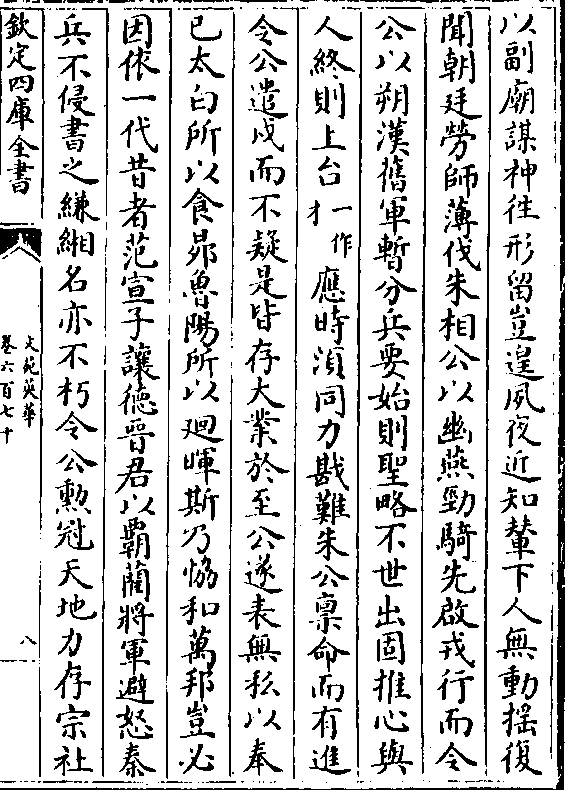 以副廟謀神往形留豈遑夙夜近知輦下人無動揺復
聞朝廷勞師薄伐朱相公以幽燕勁騎先啟戎行而令
公以朔漢舊軍暫分兵要始則聖略不世出固推心與
人終則上台一作才應時湏同力戡難朱公禀命而有進
令公遣戍而不疑是皆存大業於至公遂表無私以奉
已太白所以食昴魯陽所以廻暉斯乃恊和萬邦豈必
因依一代昔者范宣子讓徳晉君以霸藺將軍避怒秦
兵不侵書之縑緗名亦不朽令公勲冠天地力存宗社
欽定四庫全書
文苑英華
卷六百七十
八